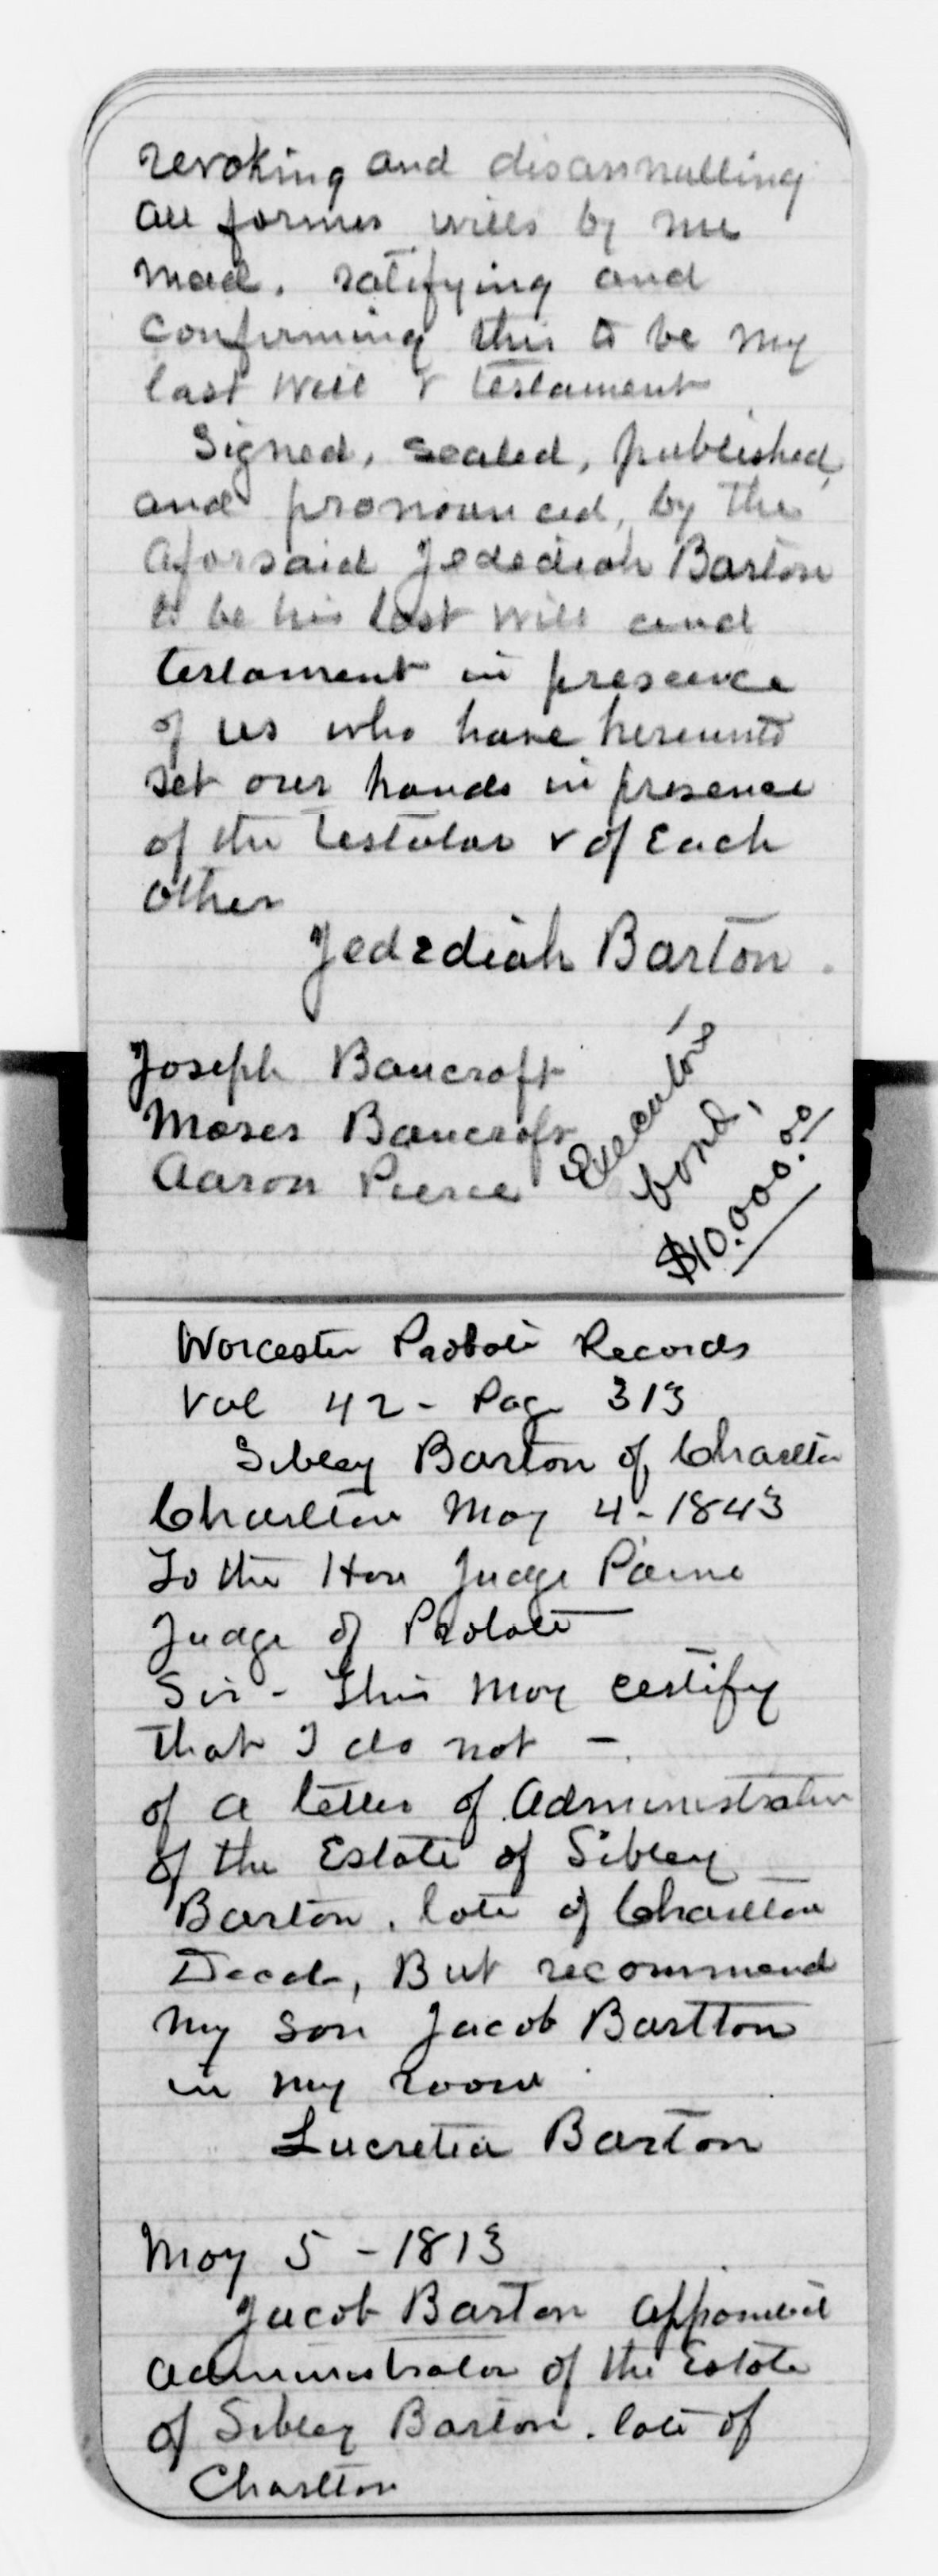 revoking and disannulling
all former wills by me
mad. ratifying and
confirming this to be my
last Will & testament
Signed, sealed, published,
and pronounced, by the
aforsaid Jedediah Barton
to be his last will and
testament in presence
of us who have hereunto
set our hands in presence
of the Testator & of Each
other
Jedediah Barton.
Joseph Bancroft
Moses Bancroft
Aaron Pierce
Executors'
bond,
$10.000.00
Worcester Probate Records
Vol 42 - Page 313
Sibley Barton of Charlton
Charlton May 4 - 1843
To the Hon Judge Paine
Judge of Probate
Sir - This may certify
that I do not -
of a letter of Administration
of the Estate of Sibley
Barton, late of Charlton
Decd, But recommend
my son Jacob Bartton
in my room
Lucretia Barton
May 5 - 1813
Jacob Barton appointed
administrator of the Estate
of Sibley Barton. late of
Charlton